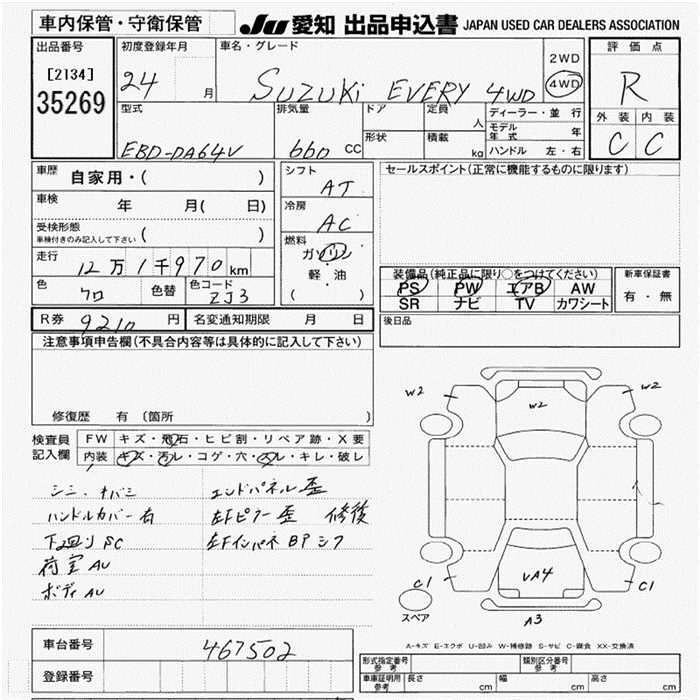 車内保管・守衛保管
JU 愛知 出品申込書 JAPAN USED CAR DEALERS ASSOCIATION
出品番号
[2134]
35269
初度登録年月
24 月
車名・グレード
SUZUKI EVERY 4WD
2WD
4WD
評価点
R
外装 内装
C C
型式
EBD-DA64V
排気量
660 CC
ドア
形状
定員
人
積載
kg
ディーラー・並行
モデル年式 年
ハンドル 左・右
車歴 自家用・( )
車検 年 月( 日)
受検形態
車検付きのみ記入して下さい ( )
走行 12万1千970km
色 クロ 色替 色コード ZJ3
シフト
AT
冷房
AC
燃料
ガソリン
軽・油
( )
セールスポイント(正常に機能するものに限ります)
装備品(純正品に限り○をつけてください)
PS PW エアB AW
SR ナビ TV カワシート
新車保証書
有・無
R券 9210 円 名変通知期限 月 日
後日品
注意事項申告欄(不具合内容等は具体的に記入して下さい)
修復歴 有〔箇所 〕
検査員記入欄
FW キズ・飛石・ヒビ割・リペア跡・X要
内装 キズ・汚レ・コゲ・穴・スレ・キレ・破レ
シミ・ナバミ エンドパネル歪
ハンドルカバー有 左Fピラー歪 修後
下廻りSC 左Fインパネ BPシワ
荷室AU
ボディAU
W2 W2
W2
C1 VA4 C1
A3
スペア
A-キズ E-エクボ U-凹み W-補修跡 S-サビ C-腐食 XX-交換済
車台番号 467502
登録番号
形式指定番号 参考 類別区分番号 参考
車庫証明用 参考 長さ cm 幅 cm 高さ cm